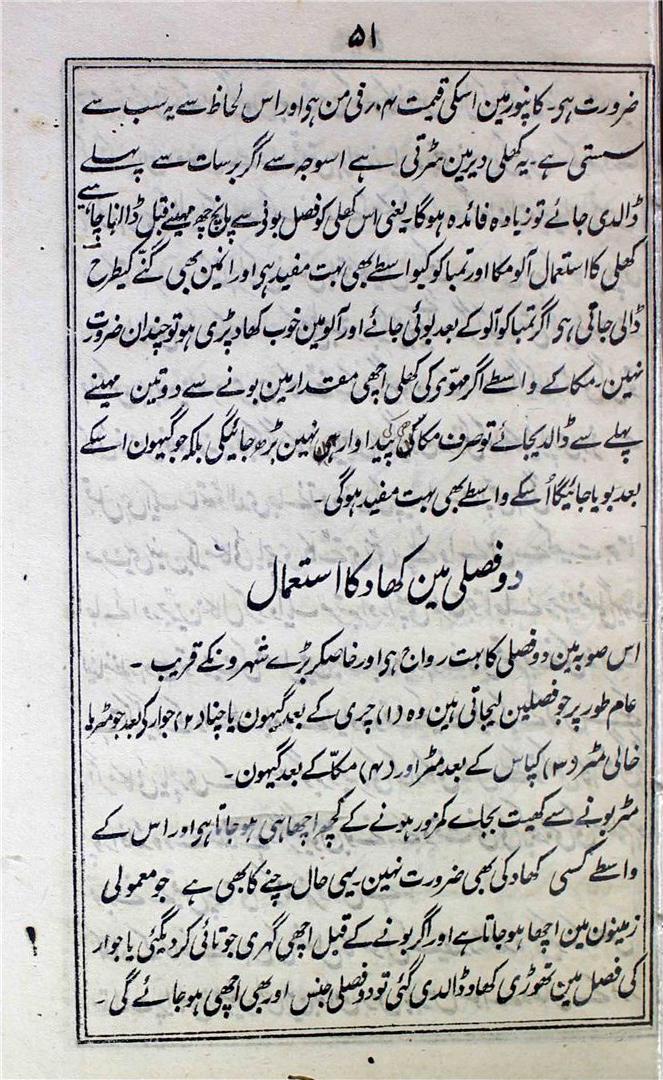 ۵۱
ضرورت ہو۔ کانپور مین اسکی قیمت ۴؍ فی من ہو اور اس لحاظ سے یہ سب سے
سستی ہے۔ یہ کھلی دیر مین سڑتی ہے اسوجہ سے اگر برسات سے پہلے
ڈالدی جائے تو زیادہ فائدہ ہوگا یعنی اس کھلی کو فصل بونی سے پانچ چھ مہینے قبل ڈالنا چاہیے
کھلی کا استعمال آلو مکا اور تمباکو کیواسطے بھی بہت مفید ہی اور انمین بھی گنے کیطرح
ڈالی جاتی ہی اگر تمباکو آلو کے بعد بوئی جائے اور آلو مین خوب کھاد پڑی ہو تو چندان ضرورت
نہین۔ مکا کے واسطے اگر مہوّی کی کھلی اچھی مقدار مین بونے سے دو تین مہینے
پہلے سے ڈالدیجائے تو صرف مکا کی پیداوار ہی نہین بڑھ جائیگی بلکہ جو گیہون اسکے
بعد بویا جائیگا اُسکے واسطے بھی بہت مفید ہوگی۔
دو فصلی مین کھاد کا استعمال
اس صوبہ مین دو فصلی کا بہت رواج ہی اور خاصکر بڑے شہرونکے قریب۔
عام طور پر جو فصلین لیجاتی ہین وہ (۱) چری کے بعد گیہون یا چنا (۲) جوار کے بعد جو مٹر یا
خالی مٹر (۳) کپاس کے بعد مٹر اور (۴) مکّا کے بعد گیہون۔
مٹر بونے سے کھیت بجاے کمزور ہونے کے کچھ اچھا ہی ہو جاتا ہی اور اس کے
واسطے کسی کھاد کی بھی ضرورت نہین یہی حال چنے کا بھی ہے جو معمولی
زمینون مین اچھا ہو جاتا ہے اور اگر بونے کے قبل اچھی گہری جوتائی کر دیگئی یا جوار
کی فصل مین تھوڑی کھاد ڈالدی گئی تو دو فصلی جنس اور بھی اچھی ہو جائے گی۔